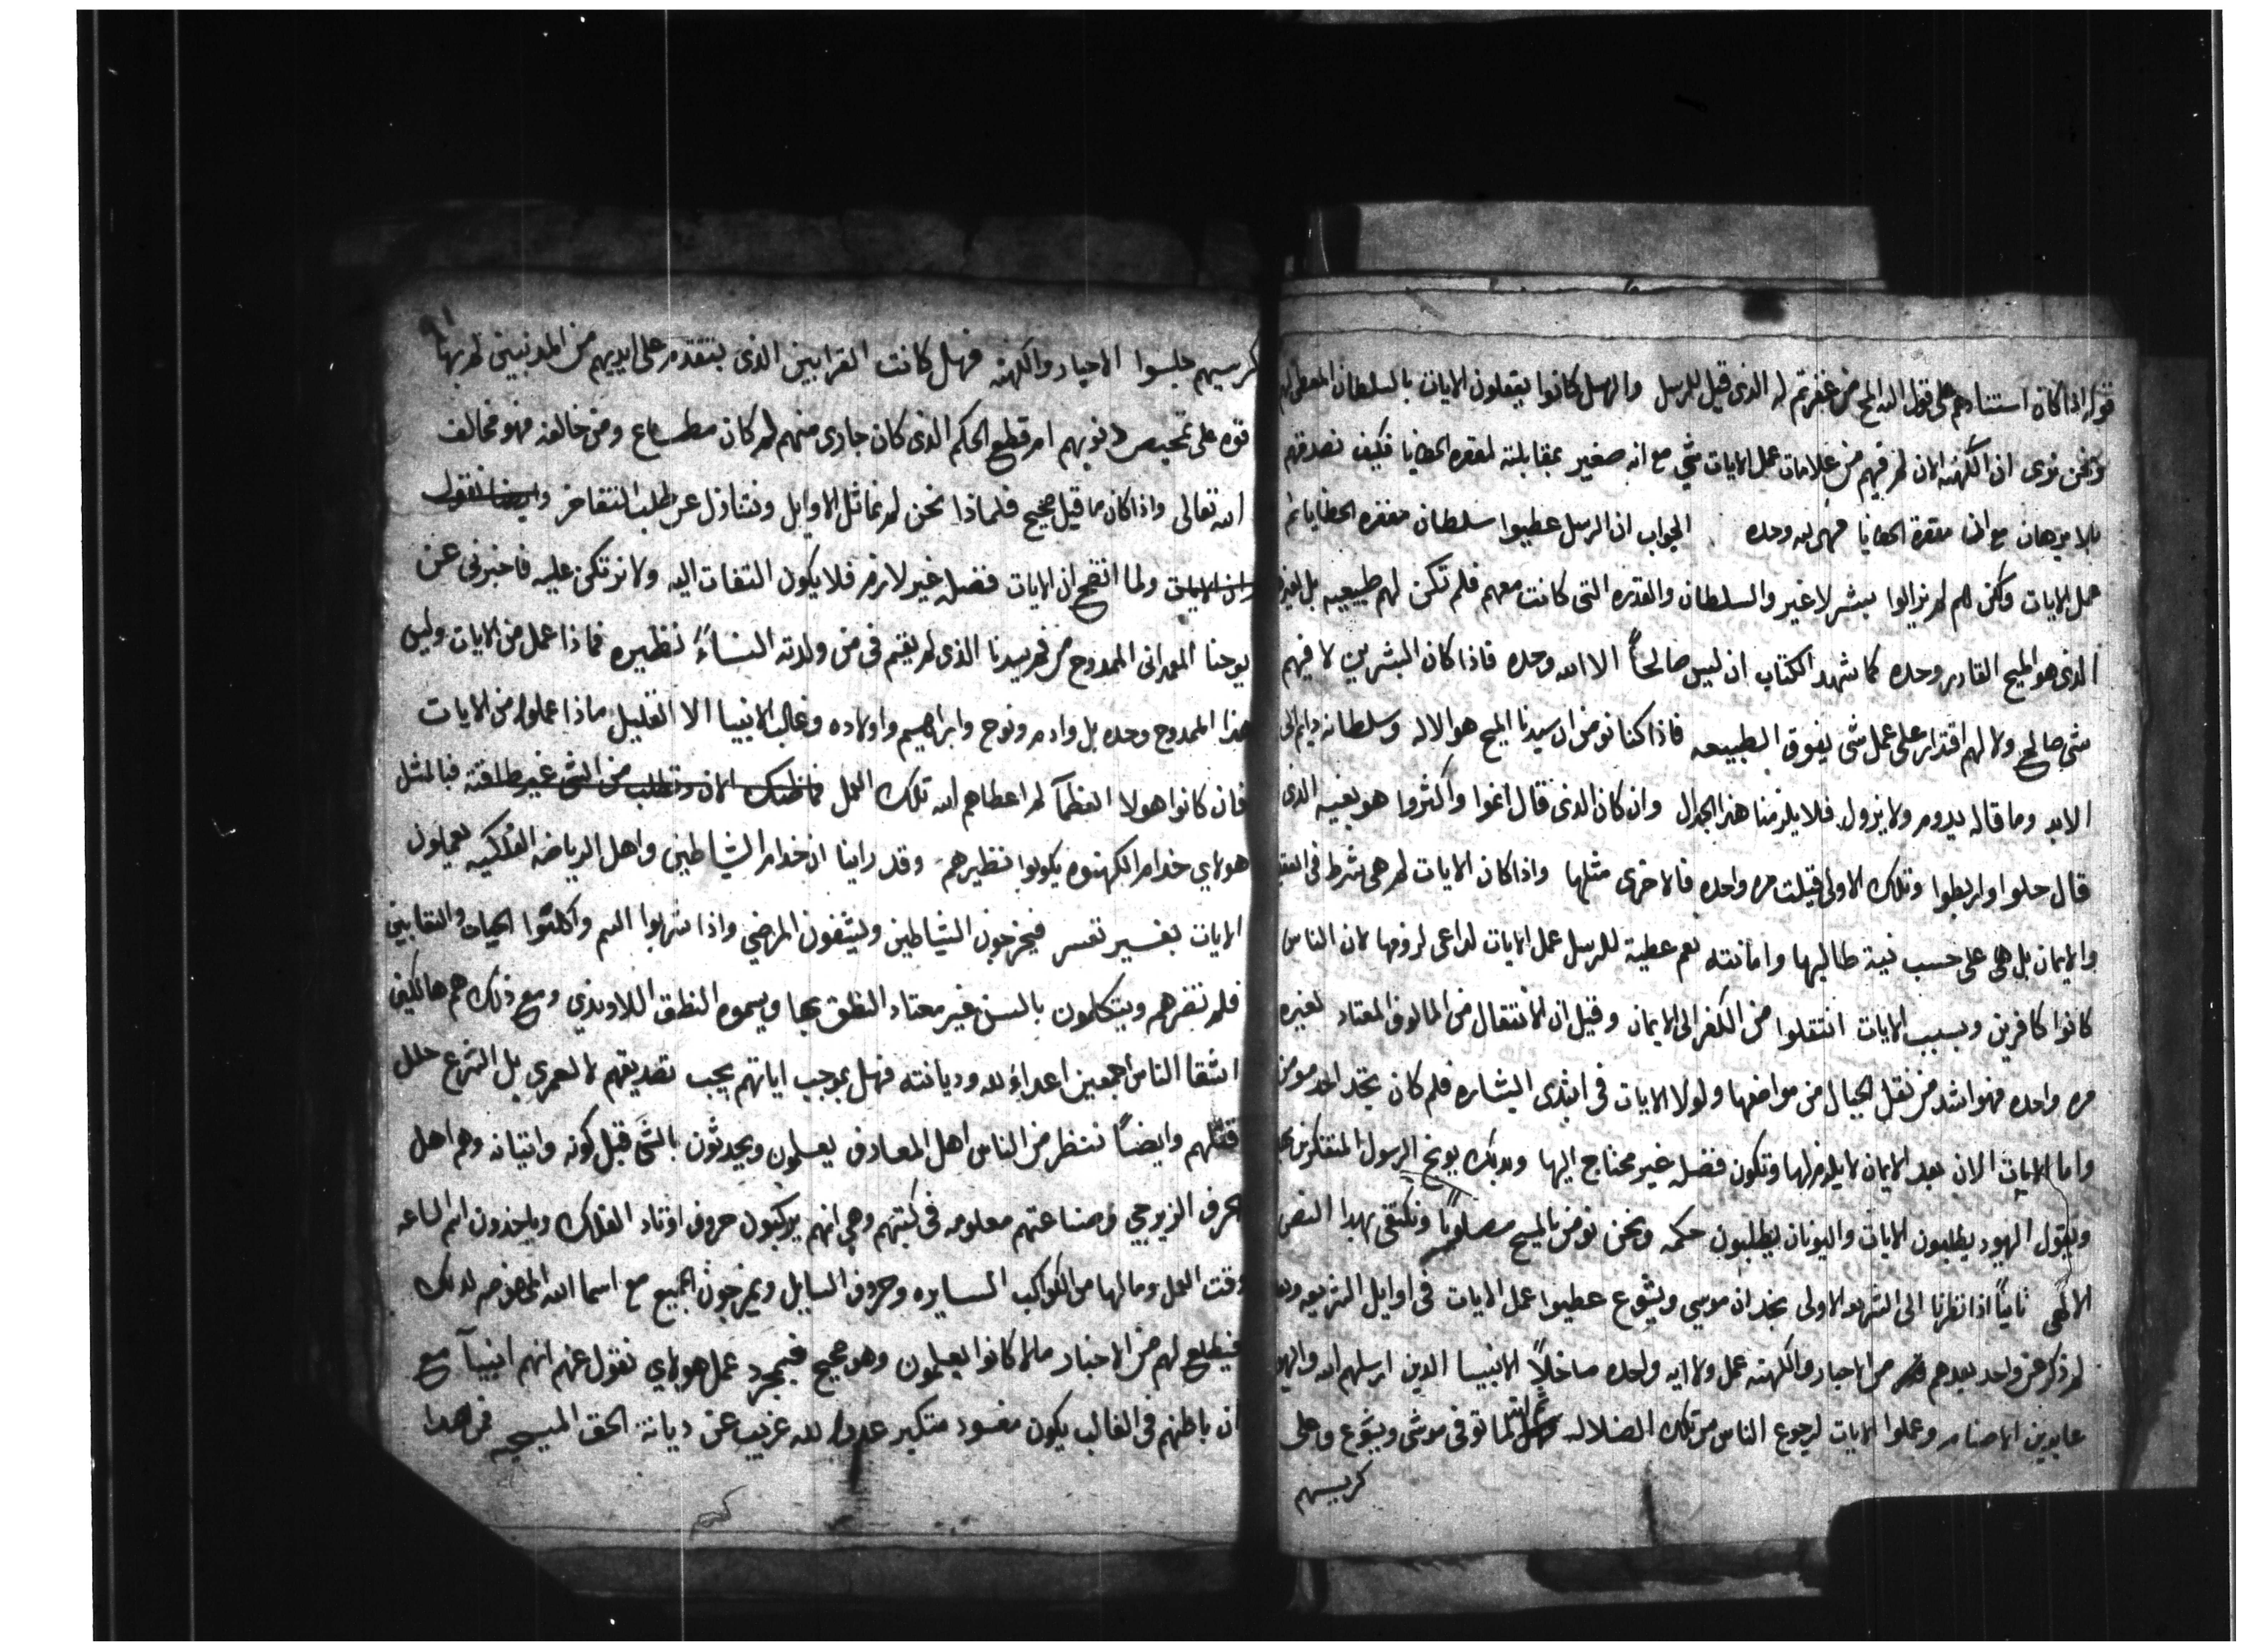 قوله اذا كان استنادهم على قول الله المسيح من غفرتم له الذى قيل للرسل والرسل كانوا يفعلون الايات بالسلطان المعطى لهم
ونحن نرى ان الكهنه الان لم فيهم من علامات عمل الايات شي مع انه صغير بمقابلته لمغفره الخطايا فكيف نصدقهم
بلا برهان مع ان مغفرة الخطايا فهى لله وحده الجواب ان الرسل عطيوا سلطان مغفره الخطايا ثم
عمل الايات ولكن هم لم يزالوا بشر لا غير والسلطان والقدره التى كانت معهم فلم تكن لهم طبيعيه بل لغيرهم
الذى هو المسيح القادر وحده كما شهد الكتاب ان ليس صالحاً الا الله وحده فاذا كان البشريين لا فيهم
شى صالح ولا لهم اقتدار على عمل شى يفوق الطبيعه فاذا كنا نومن ان سيدنا المسيح هو الاله وسلطانه دايم الى
الابد وما قاله يدوم ولا يزول فلا يلزمنا هذا الجدال وان كان الذى قال انموا واكثروا هو بعينه الذى
قال حلوا واربطوا وتلك الاولى قيلت مره واحده فالاخرى مثلها واذا كان الايات لم هى شرط فى
والايمان بل هى على حسب نية طالبها وامانته نعم عطية للرسل عمل الايات لداعى لزومها لان الناس
كانوا كافرين وبسبب الايات انتقلوا من الكفر الى الايمان وقيل ان الانتقال من المالوف المعتاد لغيره
مره واحده فهو اشد من نقل الجبال من مواضعها ولولا الايات فى ابتدى البشاره فلم كان يتخد احد مومن
واما الايات الان بعد الايمان لا يلزم لها وتكون فضله غير محتاج اليها وبدلك يوبخ الرسول المفتكرين بها
ويقول اليهود يطلبون الايات واليونان يطلبون حكمه ونحن نومن بالمسيح مصلوباً ونكتفى بهدا النص
الالهى ثانياً اذا نظرنا الى الشريعه الاولى نجد ان موسي ويشوع عطيوا عمل الايات فى اوايل الشريعه ولم
لم ذكر عن واحد بعدهم من الاحبار والكهنه عمل ولا ايه واحده ماخلاً الانبيا الدين ارسلهم الله واليهود
عابدين الاصنام وعملوا الايات لرجوع الناس من تلك الضلاله ثم انه لما توفى موسى ويشوع وعلى
كرسيهم
كرسيهم جلسوا الاحبار والكهنه فهل كانت القرابين الذى يتقدم على ايديهم من المدنبين لم بها
قوه على تمحيص ذنوبهم ام قطع الحكم الذى كان جارى منهم لم كان مطاع ومن خالفه فهو مخالف
الله تعالى واذا كان ما قيل صحيح فلماذا نحن لم نماثل الاوايل ونتنازل عن طلب التفاخر وايضا نقول
ان الايات ولما اتضح ان الايات فضله غير لازم فلا يكون التفات اليه ولا نرتكن عليه فاخبرنى عن
يوحنا المعمدانى الممدوح من فم سيدنا الذى لم يقم فى من ولدته النساءً نظيره فماذا عمل من الايات وليس
هذا الممدوح وحده بل وادم ونوح وابراهيم واولاده وغالب الانبيا الا القليل ماذا عملوا من الايات
فان كانوا هولا العظمآ لم اعطاهم الله تلك العمل فما ظنك الان وتطلب من الشى غير طاقته فبالمثل
هولاي خدام الكهنوه يكونوا نظيرهم وقد راينا ان خدام الشياطين واهل الرياضه الفلكيه يعملون
الايات بغير تعسر فيخرجون الشياطين ويشفون المرضى واذا شربوا السم واكلتوا الحيات والتعابين
فلم تضرهم ويتكلمون بالسن غير معتاد النطق بها ويسموه النطق اللاوندي ومع ذلك هم هالكين
اشقا الناس اجمعين اعداء لله وديانته فهل بموجب اياتهم يجب تصديقهم لا لعمري بل الشرع حلل
قتلهم وايضاً ننظر من الناس اهل المعارف يعلمون ويحدثون بالشى قبل كونه واتيانه وهم اهل
حرف الزيرجي وصناعتهم معلومه فى كتبهم وهي انهم يركبون حروف اوتاد الفلك وياخدون اسم الساعه
وقت العمل وما لها من الكواكب السايره وحروف السايل ويمزجون الجميع مع اسما الله المعوضه لدلك
فيطلع لهم من الاخبار ما لا كانوا يعلمون وهو صحيح فبمجرد عمل هولاي نقول عنهم انهم انبيآ مع
ان باطنهم فى الغالب يكون مفسود متكبر عدو لله غريب عن ديانة الحق المسيحيه فمن هدا